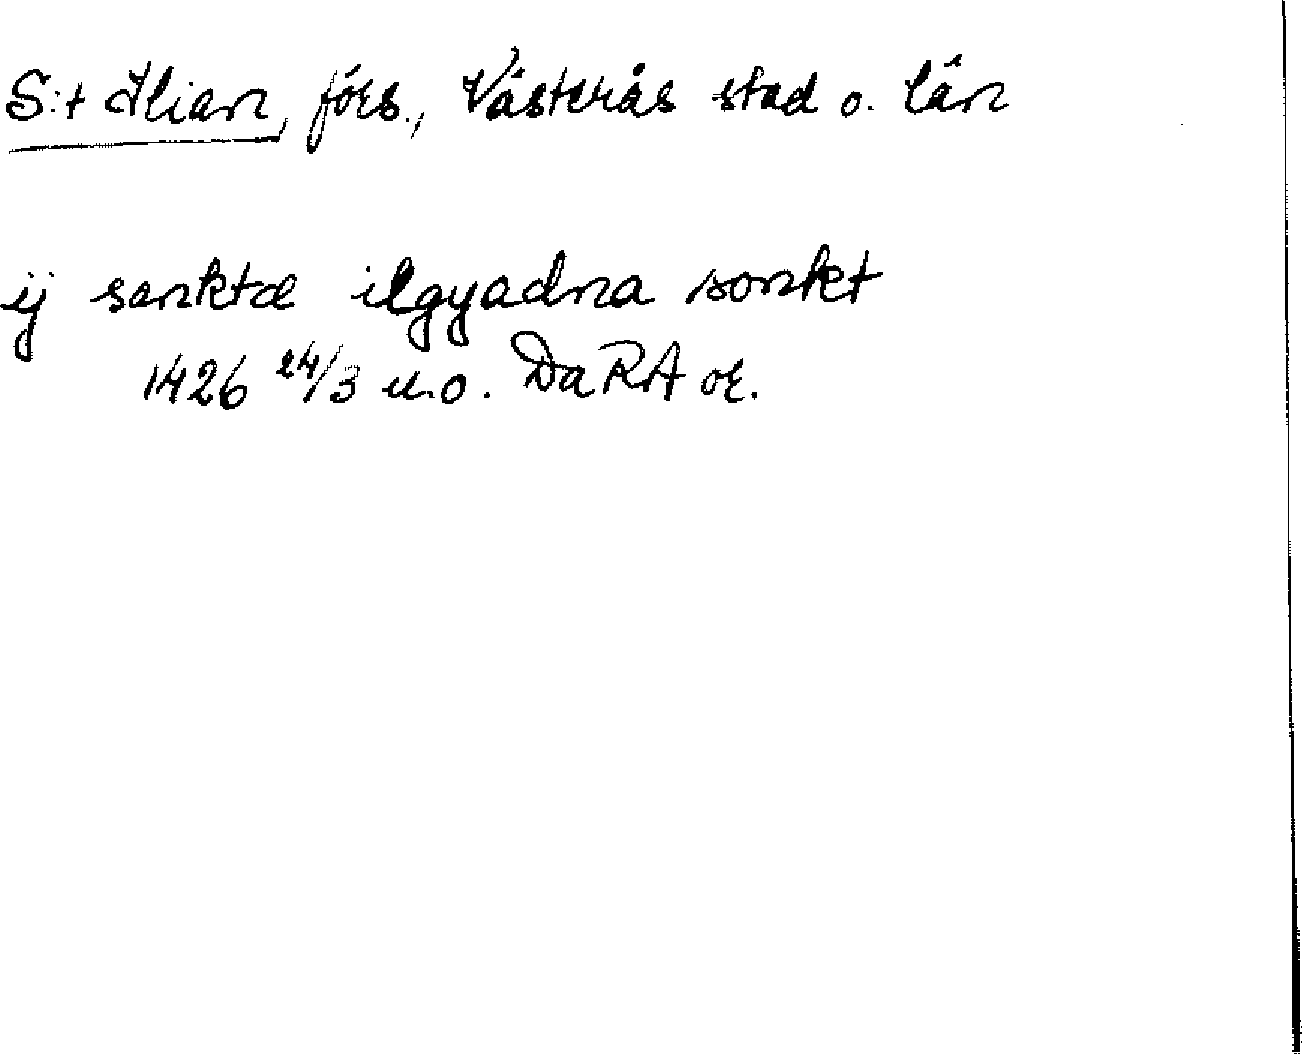 S:t Ilian, förs., Västerås stad o. län
ij sanktæ ilgyadna sonket
1426 24/3 u.o. DaRA or.